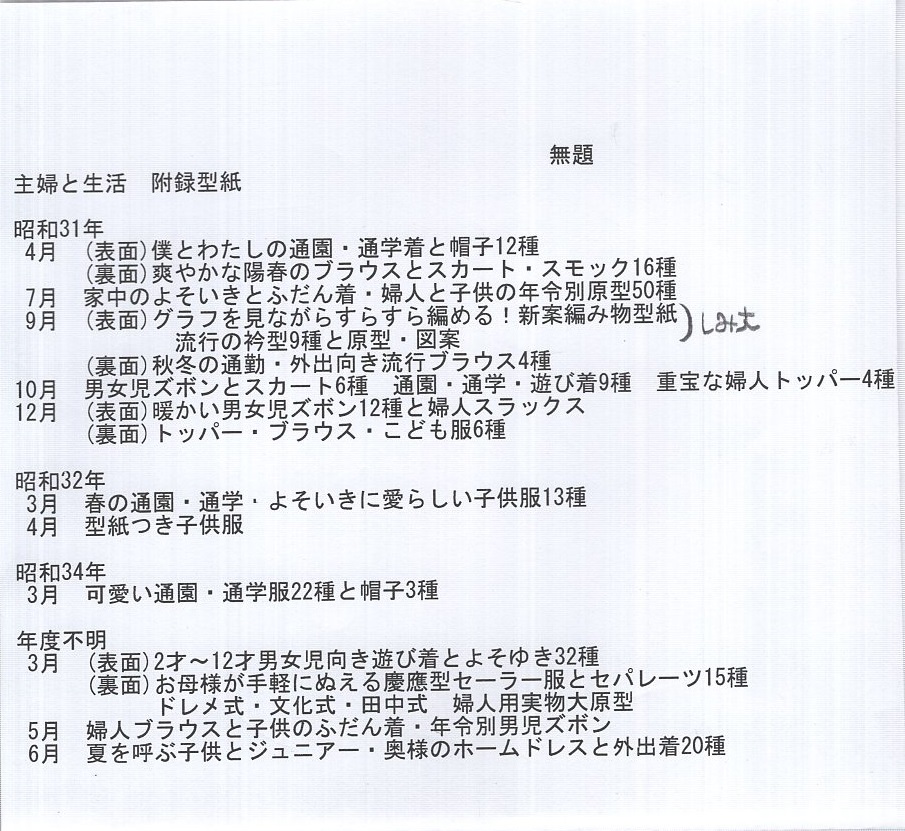 無題
主婦と生活　附録型紙
昭和31年
4月　(表面)僕とわたしの通園・通学着と帽子12種
(裏面)爽やかな陽春のブラウスとスカート・スモック16種
7月　家中のよそいきとふだん着・婦人と子供の年令別原型50種
9月　(表面)グラフを見ながらすらすら編める！新案編み物型紙
流行の衿型9種と原型・図案
)しみ大
(裏面)秋冬の通勤・外出向き流行ブラウス4種
10月　男女児ズボンとスカート6種　通園・通学・遊び着9種　重宝な婦人トッパー4種
12月　(表面)暖かい男女児ズボン12種と婦人スラックス
(裏面)トッパー・ブラウス・こども服6種
昭和32年
3月　春の通園・通学・よそいきに愛らしい子供服13種
4月　型紙つき子供服
昭和34年
3月　可愛い通園・通学服22種と帽子3種
年度不明
3月　(表面)2才～12才男女児向き遊び着とよそゆき32種
(裏面)お母様が手軽にぬえる慶應型セーラー服とセパレーツ15種
ドレメ式・文化式・田中式　婦人用実物大原型
5月　婦人ブラウスと子供のふだん着・年令別男児ズボン
6月　夏を呼ぶ子供とジュニアー・奥様のホームドレスと外出着20種